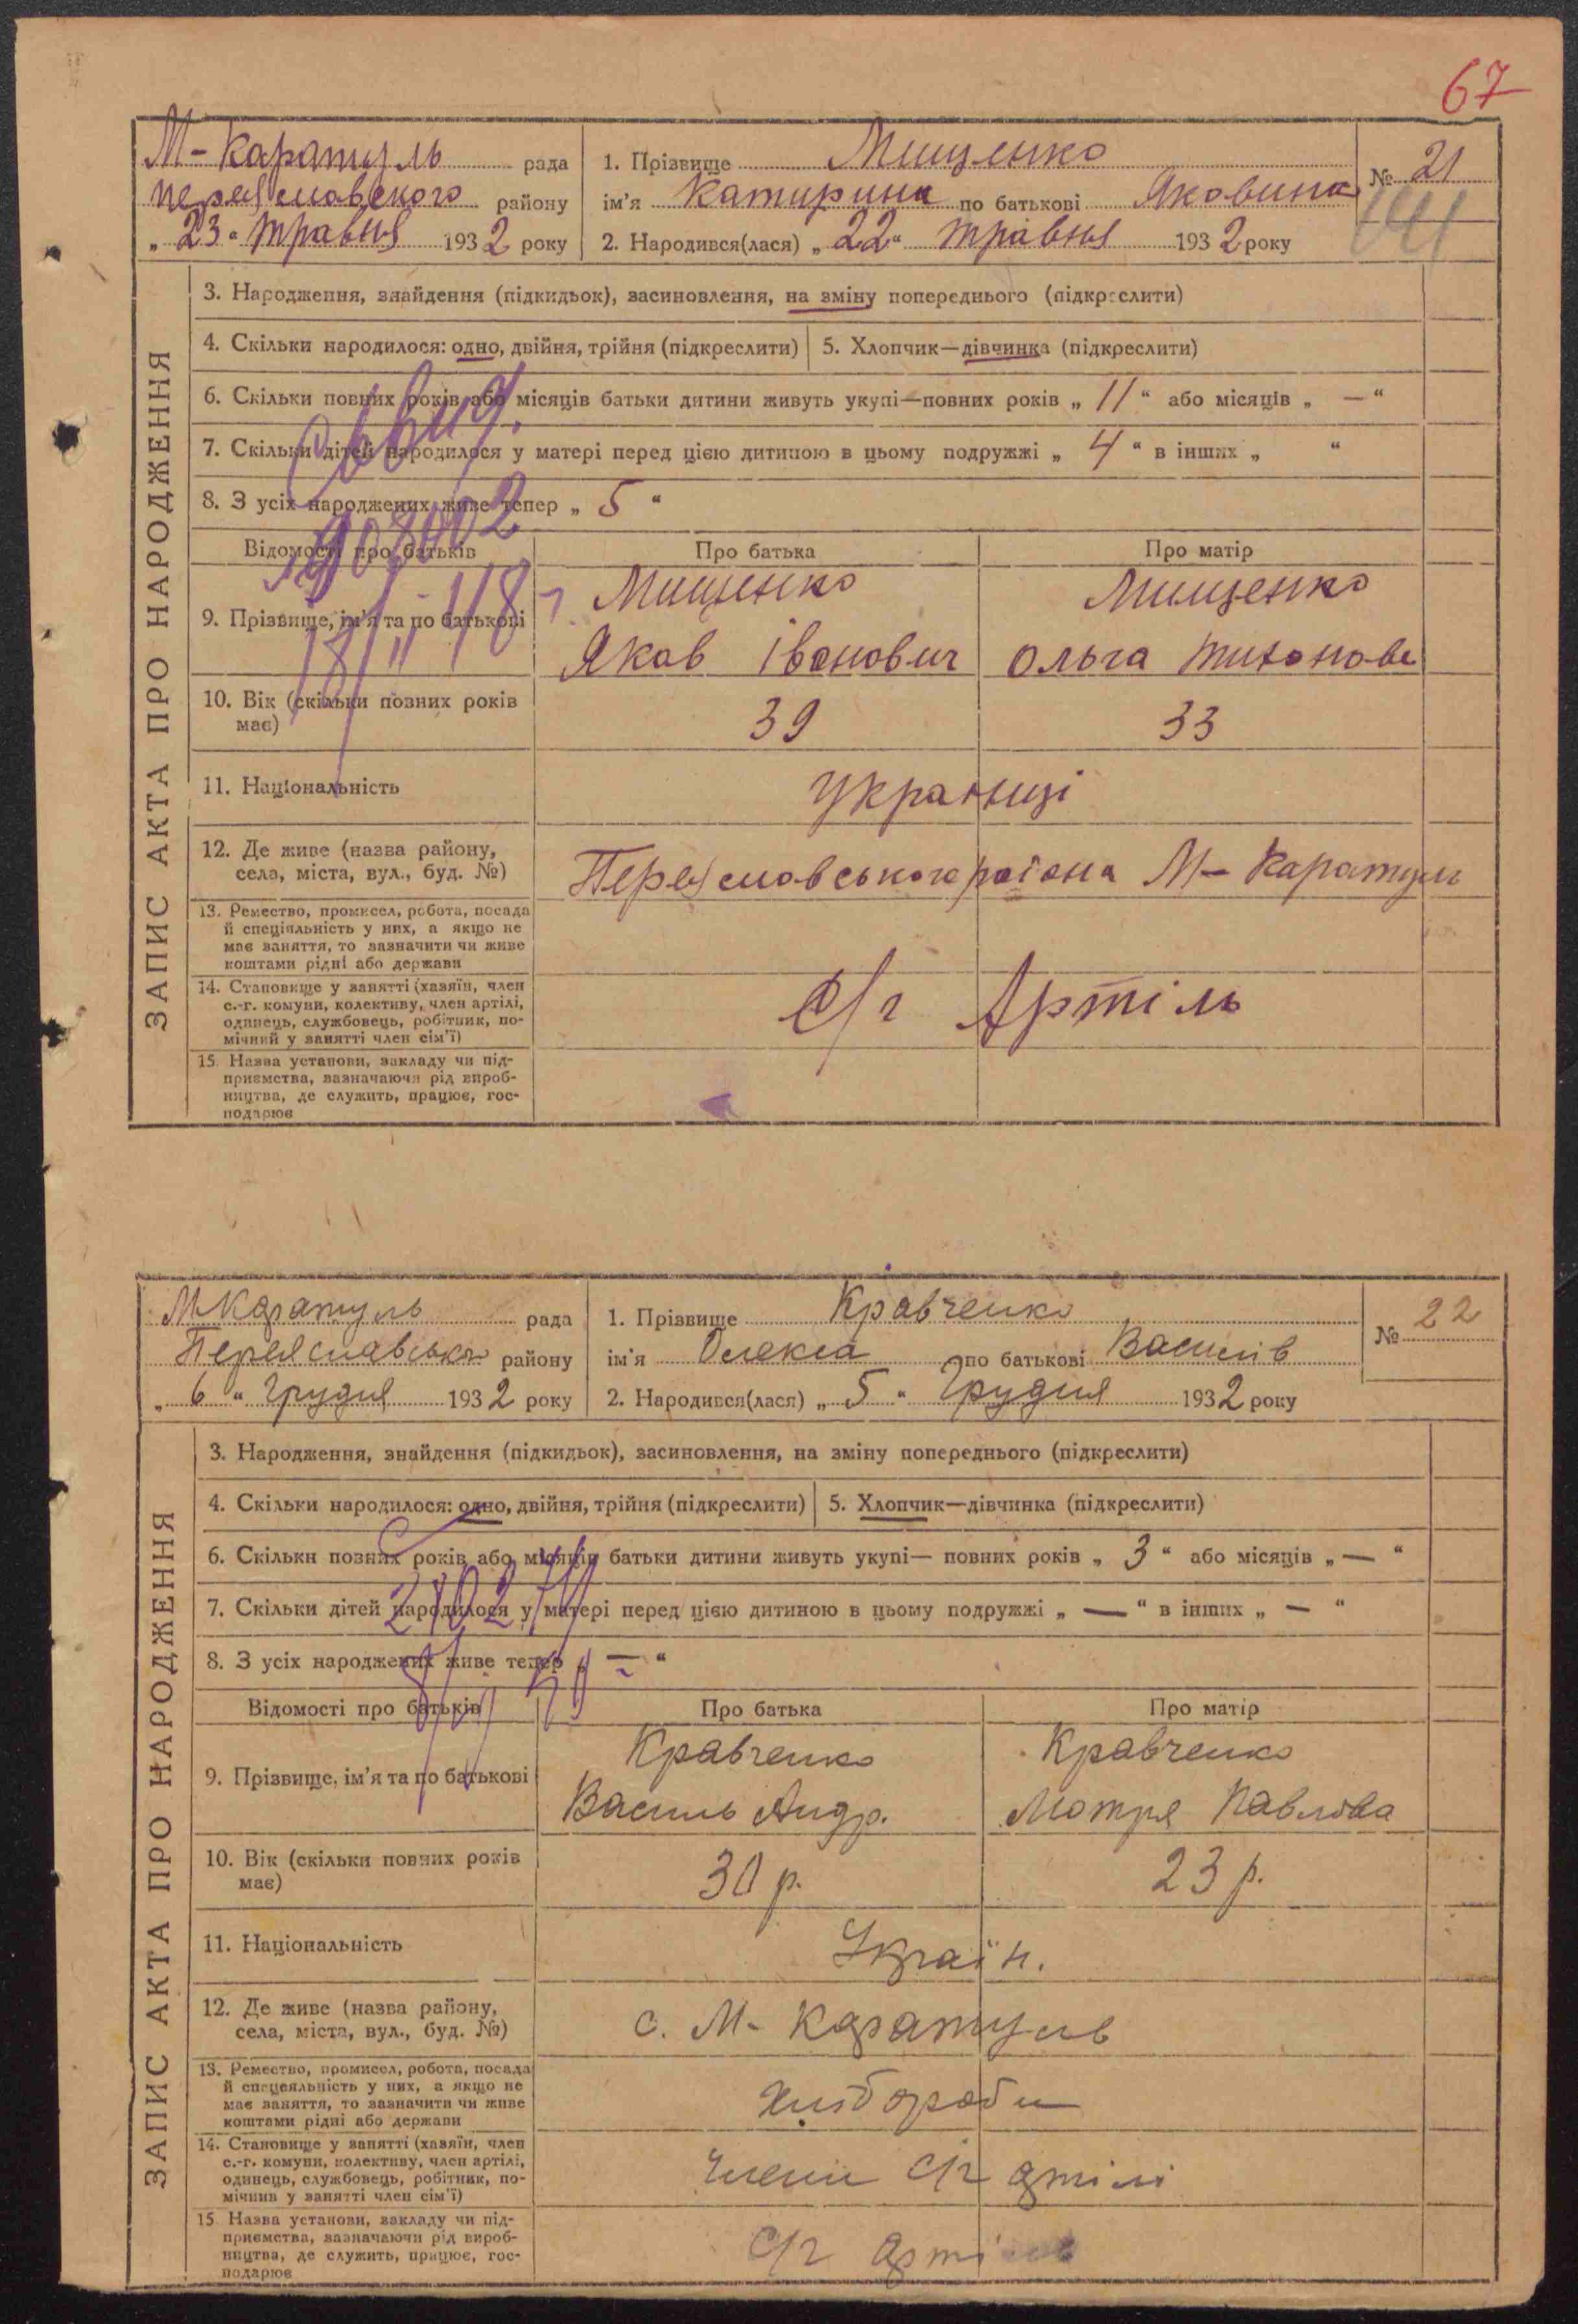 67
М-Каратуль рада
Переяславского району
„23" травня 1932 року
1. Прізвище Мищенко
ім'я Катирина по батькові Яковина
2. Народився(лася) „22" травня 1932 року
№ 21
ЗАПИС АКТА ПРО НАРОДЖЕННЯ
3. Народження, знайдення (підкидьок), засиновлення, на зміну попереднього (підкреслити)
4. Скільки народилося: одно, двійня, трійня (підкреслити) 5. Хлопчик—дівчинка (підкреслити)
6. Скільки повних років або місяців батьки дитини живуть укупі—повних років „11" або місяців „—"
7. Скільки дітей народилося у матері перед цією дитиною в цьому подружжі „4" в інших „ "
8. З усіх народжених живе тепер „5"
Відомості про батьків Про батька Про матір
9. Прізвище, ім'я та по батькові
Мищенко Мищенко
Яков Іванович Ольга Тихонова
10. Вік (скільки повних років
має)
39 33
11. Національність Украинці
12. Де живе (назва району,
села, міста, вул., буд. №)
Переяславського района М-Каратуль
13. Ремество, промисел, робота, посада
й спеціяльність у них, а якщо не
має заняття, то зазначити чи живе
коштами рідні або держави
14. Становище у занятті (хазяїн, член
с.-г. комуни, колективу, член артілі,
одинець, службовець, робітник, по-
мічний у занятті член сім'ї)
С/г Артіль
15. Назва установи, закладу чи під-
приємства, зазначаючи рід вироб-
ництва, де служить, працює, гос-
подарює
М Каратуль рада
Переяславськ району
„6" Грудня 1932 року
1. Прізвище Кравченко
ім'я Олекса по батькові Василів
2. Народився(лася) „5" Грудня 1932 року
№ 22
ЗАПИС АКТА ПРО НАРОДЖЕННЯ
3. Народження, знайдення (підкидьок), засиновлення, на зміну попереднього (підкреслити)
4. Скільки народилося: одно, двійня, трійня (підкреслити) 5. Хлопчик—дівчинка (підкреслити)
6. Скільки повних років або місяців батьки дитини живуть укупі— повних років „3" або місяців „—"
7. Скільки дітей народилося у матері перед цією дитиною в цьому подружжі „—" в інших „—"
8. З усіх народжених живе тепер „—"
Відомості про батьків Про батька Про матір
9. Прізвище, ім'я та по батькові
Кравченко Кравченко
Василь Андр. Мотря Павлова
10. Вік (скільки повних років
має)
30 р. 23 р.
11. Національність Україн.
12. Де живе (назва району,
села, міста, вул., буд. №)
с. М-Каратуль
13. Ремество, промисел, робота, посада
й спецеяльність у них, а якщо не
має заняття, то зазначити чи живе
коштами рідні або держави
Хлібороби
14. Становище у занятті (хазяїн, член
с.-г. комуни, колективу, член артілі,
одинець, службовець, робітник, по-
мічнив у занятті член сім'ї)
Члени С/г артілі
15 Назва установи, закладу чи під-
приємства, зазначаючи рід вироб-
ництва, де служить, працює, гос-
подарює
С/г артіль